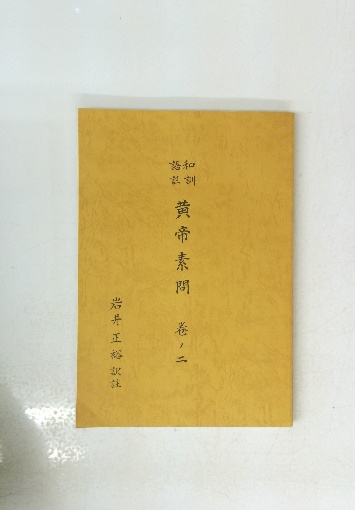 和訓
語註
黄帝素問 卷ノ二
岩井正裕訳註